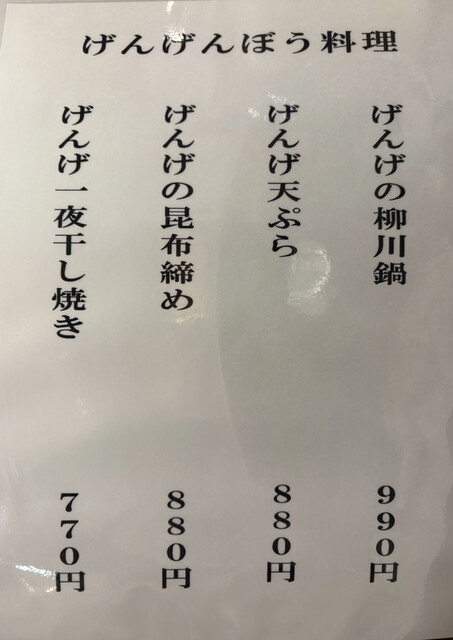 げんげんぼう料理
げんげの柳川鍋 990円
げんげ天ぷら 880円
げんげの昆布締め 880円
げんげ一夜干し焼き 770円